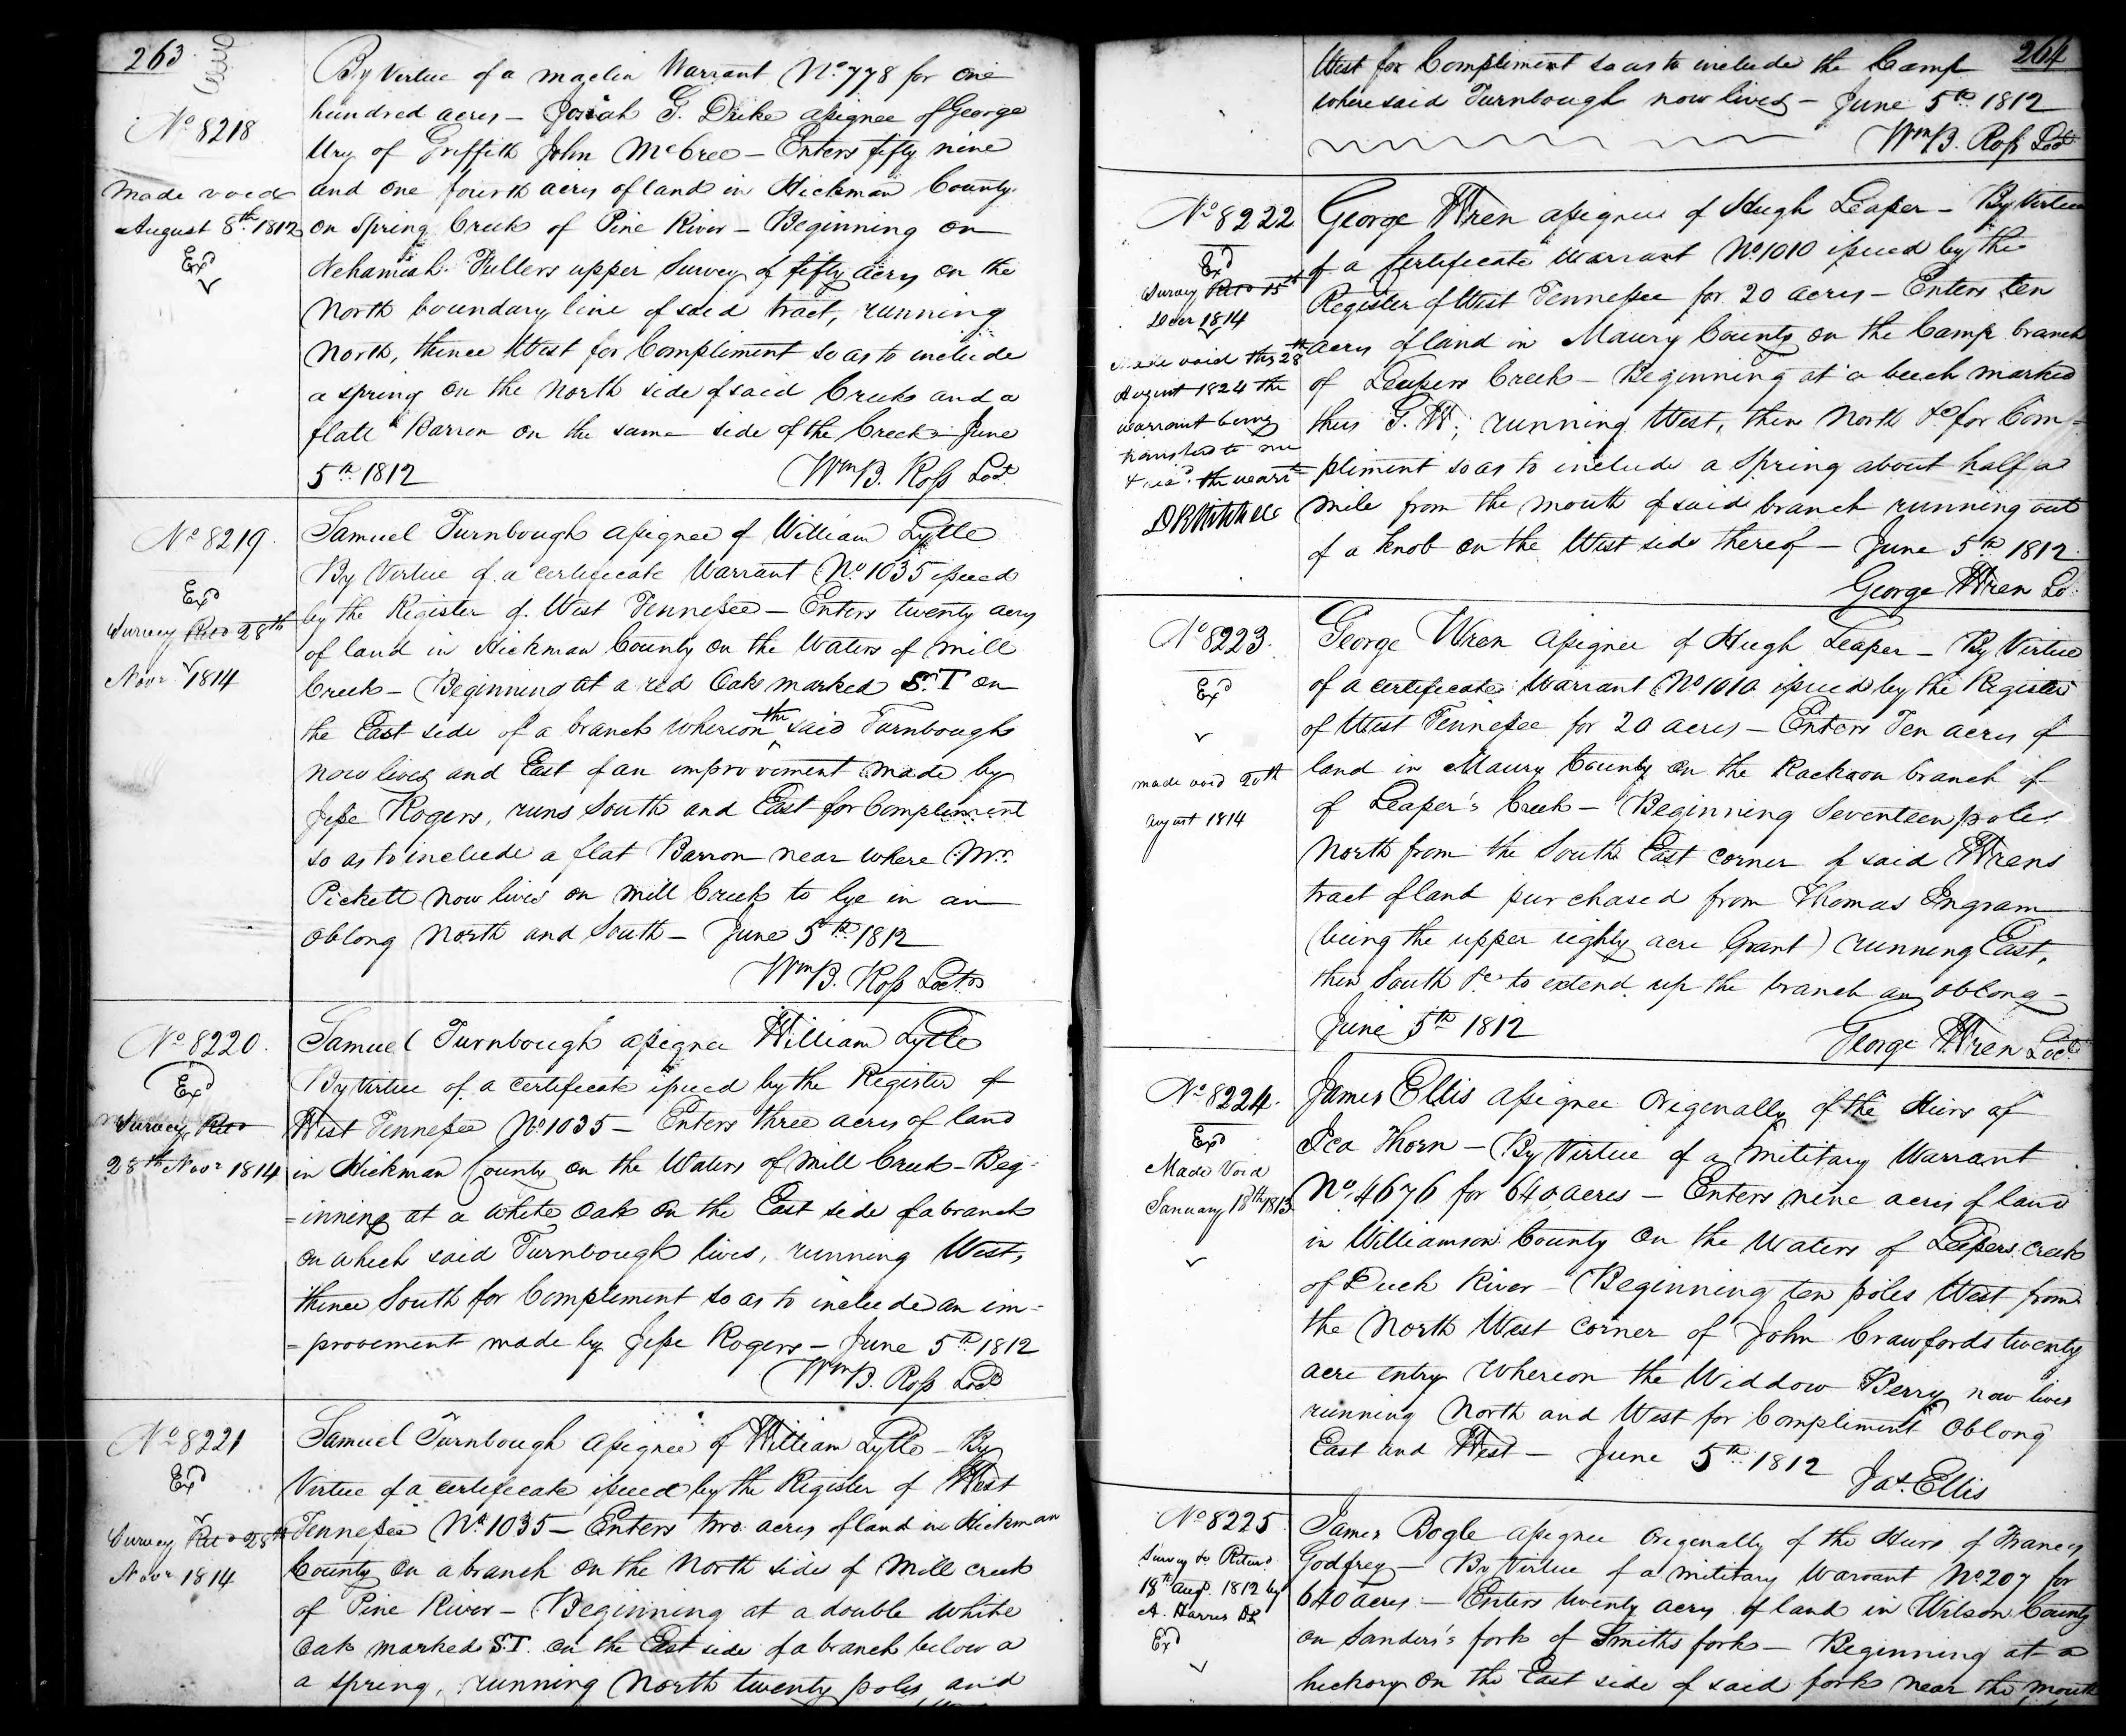 263
No 8218
made void
August 8th 1812
Exd
By Virtue of a Maclin Warrant No. 778 for one
hundred acres - Josiah G. Duke assignee of George
Ury of Griffith John McCree - Enters fifty nine
and one fourth acres of land in Hickman County
on Spring Creek of Pine River - Beginning on
Nehamiah Fullers upper Survey of fifty acres on the
North boundary line of said tract, running
North, thence West for Compliment so as to include
a spring on the North side of said Creek and a
flatt Barren on the same side of the Creek - June
5th 1812 Wm B. Ross Loct.
No 8219.
Exd
Survey Retd 28th
Novr 1814
Samuel Turnbough assignee of William Lytle
By Virtue of a certificate Warrant No. 1035 issued
by the Register of West Tennessee - Enters twenty acres
of land in Hickman County on the Waters of Mill
Creek - Beginning at a red Oak marked S.T on
the East side of a branch whereon the said Turnbough
now lives and East of an improvement made by
Jesse Rogers, runs South and East for Compliment
so as to include a flat Barron near where Mr.
Pickett now lives on Mill Creek to lye in an
oblong North and South - June 5th 1812
Wm B. Ross Loctr
No 8220.
Exd
Survey Retd
28th Novr 1814
Samuel Turnbough assignee William Lytle
By Virtue of a certificate issued by the Register of
West Tennessee No 1035 - Enters three acres of land
in Hickman County on the Waters of Mill Creek - Beg=
=inning at a White Oak on the East side of a branch
on which said Turnbough lives, running West,
thence South for Compliment so as to include an im=
=provement made by Jesse Rogers - June 5th 1812
Wm B. Ross Loct
No 8221
Exd
Survey Retd 28th
Novr 1814
Samuel Turnbough assignee of William Lytle - By
Virtue of a certificate issued by the Register of West
Tennessee No 1035 - Enters two acres of land in Hickman
County on a branch on the North side of Mill creek
of Pine River - Beginning at a double White
Oak marked S.T. on the East side of a branch below a
a spring, running North twenty poles and
264
West for Compliment so as to include the Camp
where said Turnbough now lives - June 5th 1812
Wm B. Ross Loct
No 8222
Exd
Survey Retd 15th
Decr 1814
Made void this 28th
August 1824 the
warrant being
transferd to me
& recd. the warrt
D B Mitchell
George Wren assignee of Hugh Leaper - By Virtue
of a Certificate Warrant No. 1010 issued by the
Register of West Tennessee for 20 acres - Enters ten
acres of land in Maury County on the Camp branch
of Leapers Creek - Beginning at a beech marked
thus G.W; running West, then North &c for Com=
pliment so as to include a Spring about half a
mile from the mouth of said branch running out
of a Knob on the West side thereof - June 5th 1812.
George Wren Lo.
No 8223.
Exd
made void 20th
August 1814
George Wren assignee of Hugh Leaper - By Virtue
of a certificate Warrant No 1010 issued by the Register
of West Tennessee for 20 acres - Enters Ten acres of
land in Maury County on the Rackoon branch of
of Leaper's Creek - Beginning Seventeen poles
North from the South East corner of said Wrens
tract of land purchased from Thomas Ingram
(being the upper eighty acre Grant) running East,
then South &c to extend up the branch an oblong -
June 5th 1812 George Wren Loct
No 8224.
Exd
Made Void
January 18th 1813
James Ellis assignee Origenally of the Heirs of
Ica Thorn - By Virtue of a Military Warrant
No. 4676 for 640 acres - Enters nine acres of land
in Williamson County on the Waters of Leepers creek
of Duck River - Beginning ten poles West from
the North West corner of John Crawfords twenty
acre entry whereon the Widdow Berry now lives
running North and West for Compliment Oblong
East and West - June 5th 1812 Jas. Ellis
No 8225
Survey &c Returd
18th Augt. 1812 by
A. Harris DS
Exd
James Bogle assignee Origenally of the Heirs of Francis
Godfrey - By Virtue of a Military Warrant No. 207 for
640 acres - Enters twenty acres of land in Wilson County
on Sanders's fork of Smiths fork - Beginning at a
hickory on the East side of said fork near the mouth